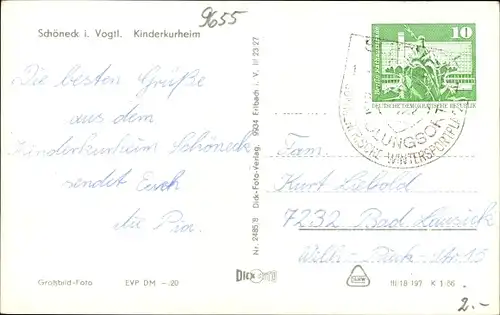 Schöneck i. Vogtl. Kinderkurheim
9655
Die besten Grüße
aus dem
Kinderkurheim Schöneck
sendet Euch
die Pia.
Großbild-Foto EVP DM –,20
Nr. 2485/8 Dick-Foto-Verlag, 9934 Erlbach i. V. III 23 27
DICK
10
DEUTSCHE DEMOKRATISCHE REPUBLIK
WINTERSPORTPL
Fam.
Kurt Liebold
7232 Bad Lausick
Wilh.-Pieck-Str. 15
III 18 197 K 1-86
2.-